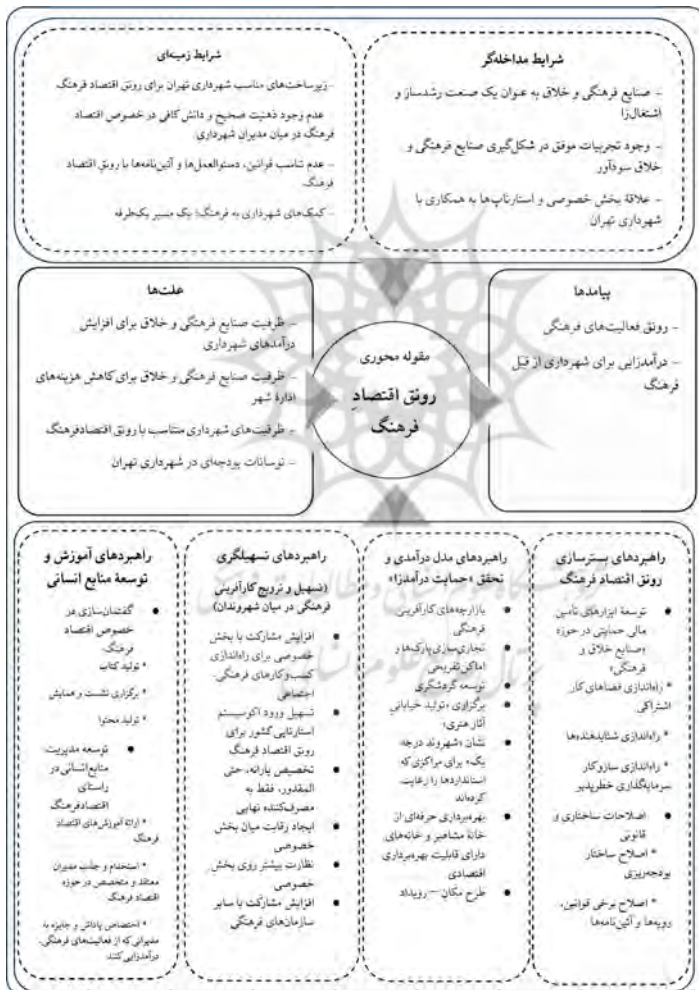 شرایط مداخله‌گر
– صنایع فرهنگی و خلاق به عنوان یک صنعت رشدساز و
اشتغال‌زا
– وجود تجربیات موفق در شکل‌گیری صنایع فرهنگی و
خلاق سودآور
– علاقهٔ بخش خصوصی و استارتاپ‌ها به همکاری با
شهرداری تهران
شرایط زمینه‌ای
– زیرساخت‌های مناسب شهرداری تهران برای رونق اقتصاد فرهنگ
– عدم وجود ذهنیت صحیح و دانش کافی در خصوص اقتصاد
فرهنگ در میان مدیران شهرداری
– عدم تناسب قوانین، دستوالعمل‌ها و آئین‌نامه‌ها با رونق اقتصاد
فرهنگ
– کمک‌های شهرداری به فرهنگ؛ یک مسیر یک‌طرفه
پیامدها
– رونق فعالیت‌های فرهنگی
– درآمدزایی برای شهرداری از قبل
فرهنگ
مقوله محوری
رونق اقتصادِ
فرهنگ
علت‌ها
– ظرفیت صنایع فرهنگی و خلاق برای افزایش
درآمدهای شهرداری
– ظرفیت صنایع فرهنگی و خلاق برای کاهش هزینه‌های
ادارهٔ شهر
– ظرفیت‌های شهرداری متناسب با رونق اقتصادفرهنگ
– نوسانات بودجه‌ای در شهرداری تهران
راهبردهای بسترسازی
رونق اقتصاد فرهنگ
● توسعه ابزارهای تأمین
مالی حمایتی در حوزه
«صنایع خلاق و
فرهنگی»
* راه‌اندازی فضاهای کار
اشتراکی
* راه‌اندازی شتابدهنده‌ها
* راه‌اندازی سازوکار
سرمایه‌گذاری خطرپذیر
● اصلاحات ساختاری و
قانونی
* اصلاح ساختار
بودجه‌ریزی
* اصلاح برخی قوانین،
رویه‌ها و آئین‌نامه‌ها
راهبردهای مدل درآمدی و
تحقق «حمایت درآمدزا»
● بازارچه‌های کارآفرینی
فرهنگی
● تجاری‌سازی پارک‌ها و
اماکن تفریحی
● توسعه گردشگری
● برگزاری «تولید خیابانی
آثار هنری»
● نشان «شهروند درجه
یک» برای مراکزی که
استانداردها را رعایت
کرده‌اند
● بهره‌برداری حرفه‌ای از
خانهٔ مشاهیر و خانه‌های
دارای قابلیت بهره‌برداری
اقتصادی
● طرح مکان–رویداد
راهبردهای تسهیلگری
(تسهیل و ترویج کارآفرینی
فرهنگی در میان شهروندان)
● افزایش مشارکت با بخش
خصوصی برای راه‌اندازی
کسب‌وکارهای فرهنگی-
اجتماعی
● تسهیل ورود اکوسیستم
استارتاپی کشور برای
رونق اقتصاد فرهنگ
● تخصیص یارانه، حتی
المقدور، فقط به
مصرف‌کننده نهایی
● ایجاد رقابت میان بخش
خصوصی
● نظارت بیشتر روی بخش
خصوصی
● افزایش مشارکت با سایر
سازمان‌های فرهنگی
راهبردهای آموزش و
توسعهٔ منابع انسانی
● گفتمان‌سازی در
خصوص اقتصاد
فرهنگ
* تولید کتاب
* برگزاری نشست و همایش
* تولید محتوا
● توسعه مدیریت
منابع‌انسانی در
راستای
اقتصادفرهنگ
* ارائهٔ آموزش‌های اقتصاد
فرهنگ
* استخدام و جذب مدیران
معتقد و متخصص در حوزه
اقتصاد فرهنگ
* اختصاص پاداش و جایزه به
مدیرانی که از فعالیت‌های فرهنگی،
درآمدزایی کنند.
پرتال جامع علوم انسانی